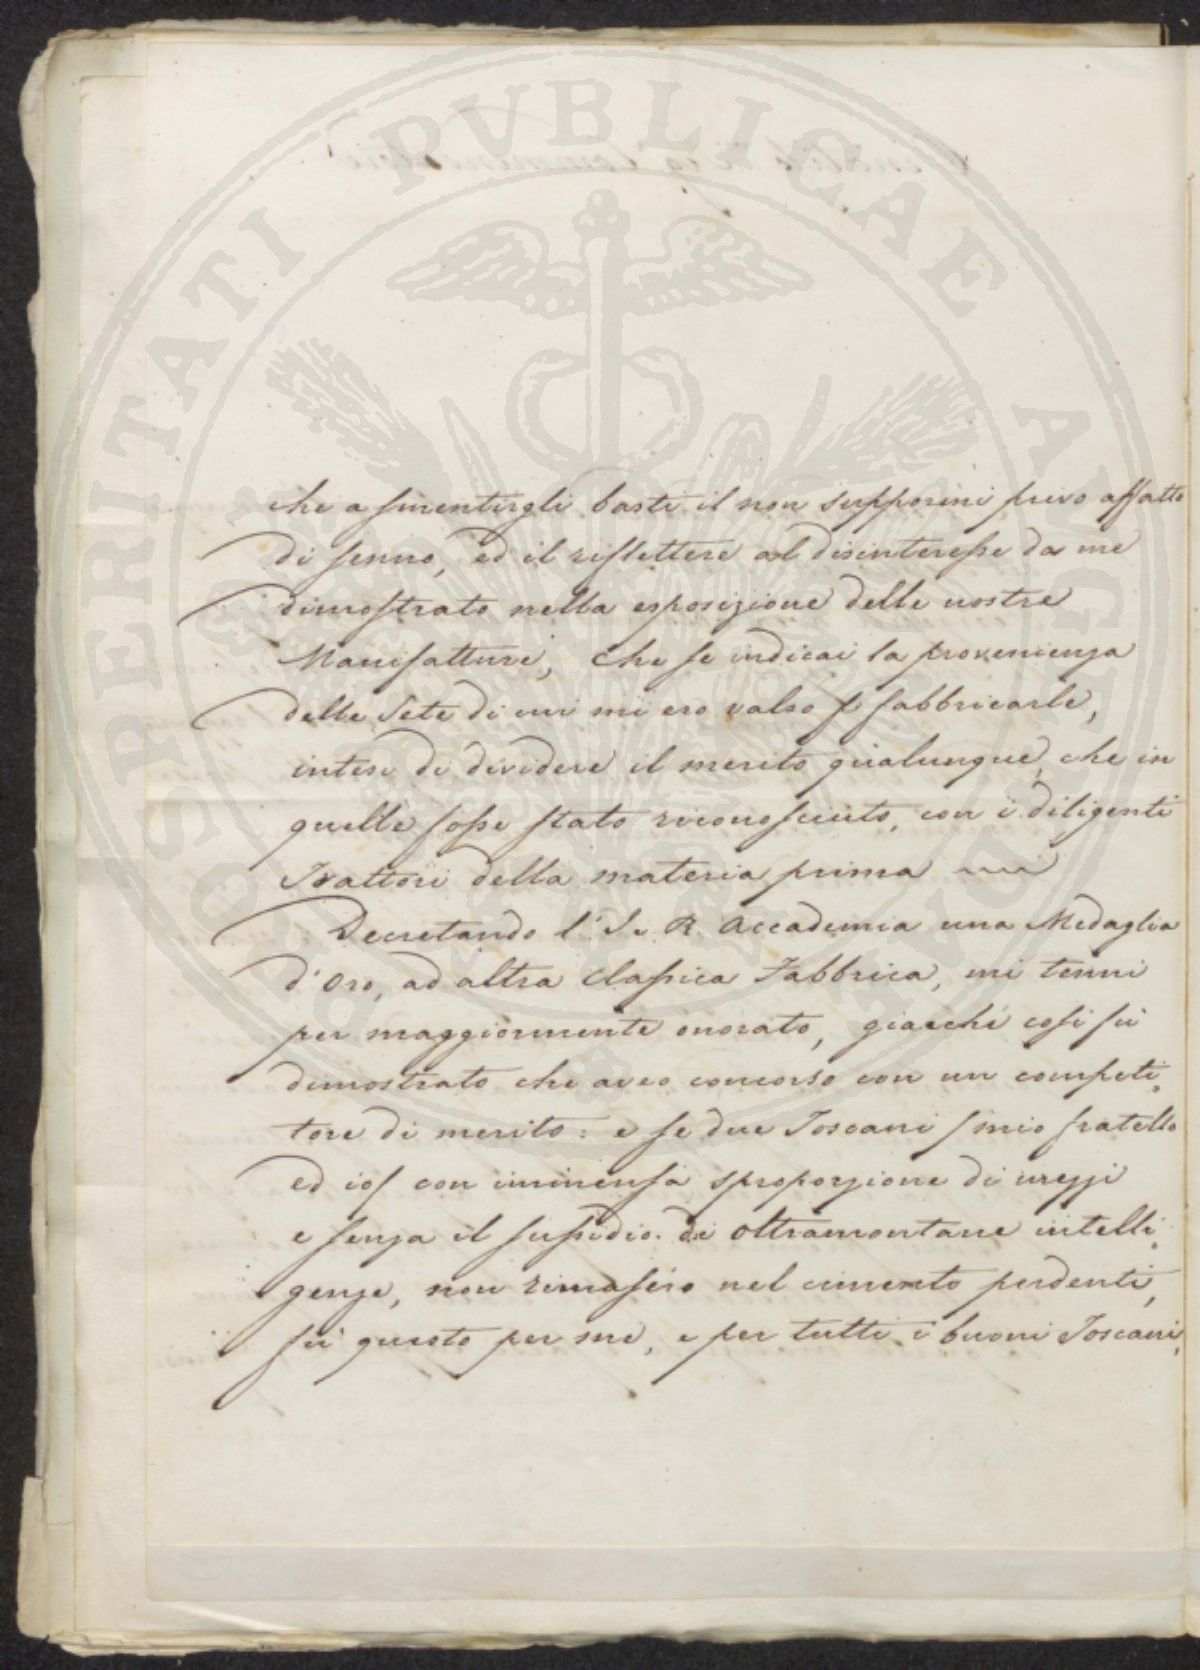 PROSPERITATI PVBLICAE AVGENDAE
che a smentirgli basti il non suppormi privo affatto
di senno, ed il riflettere al disinteresse da me
dimostrato nella esposizione delle nostre
Manifatture, che se indicai la provenienza
delle Sete di cui mi ero valso p fabbricarle,
intesi di dividere il merito qualunque, che in
quelle fosse stato riconosciuto, con i diligenti
Trattori della materia prima
Decretando l'I. R. Accademia una Medaglia
d'Oro, ad altra Classica Fabbrica, mi tenni
per maggiormente onorato, giacchè così fù
dimostrato che aveo concorso con un competi„
tore di merito: e se due Toscani (mio fratello
ed io) con immensa sproporzione di mezzi
e senza il sussidio di oltramontane intelli„
genze, non rimasero nel cimento perdenti,
fù questo per me, e per tutti i buoni Toscani,